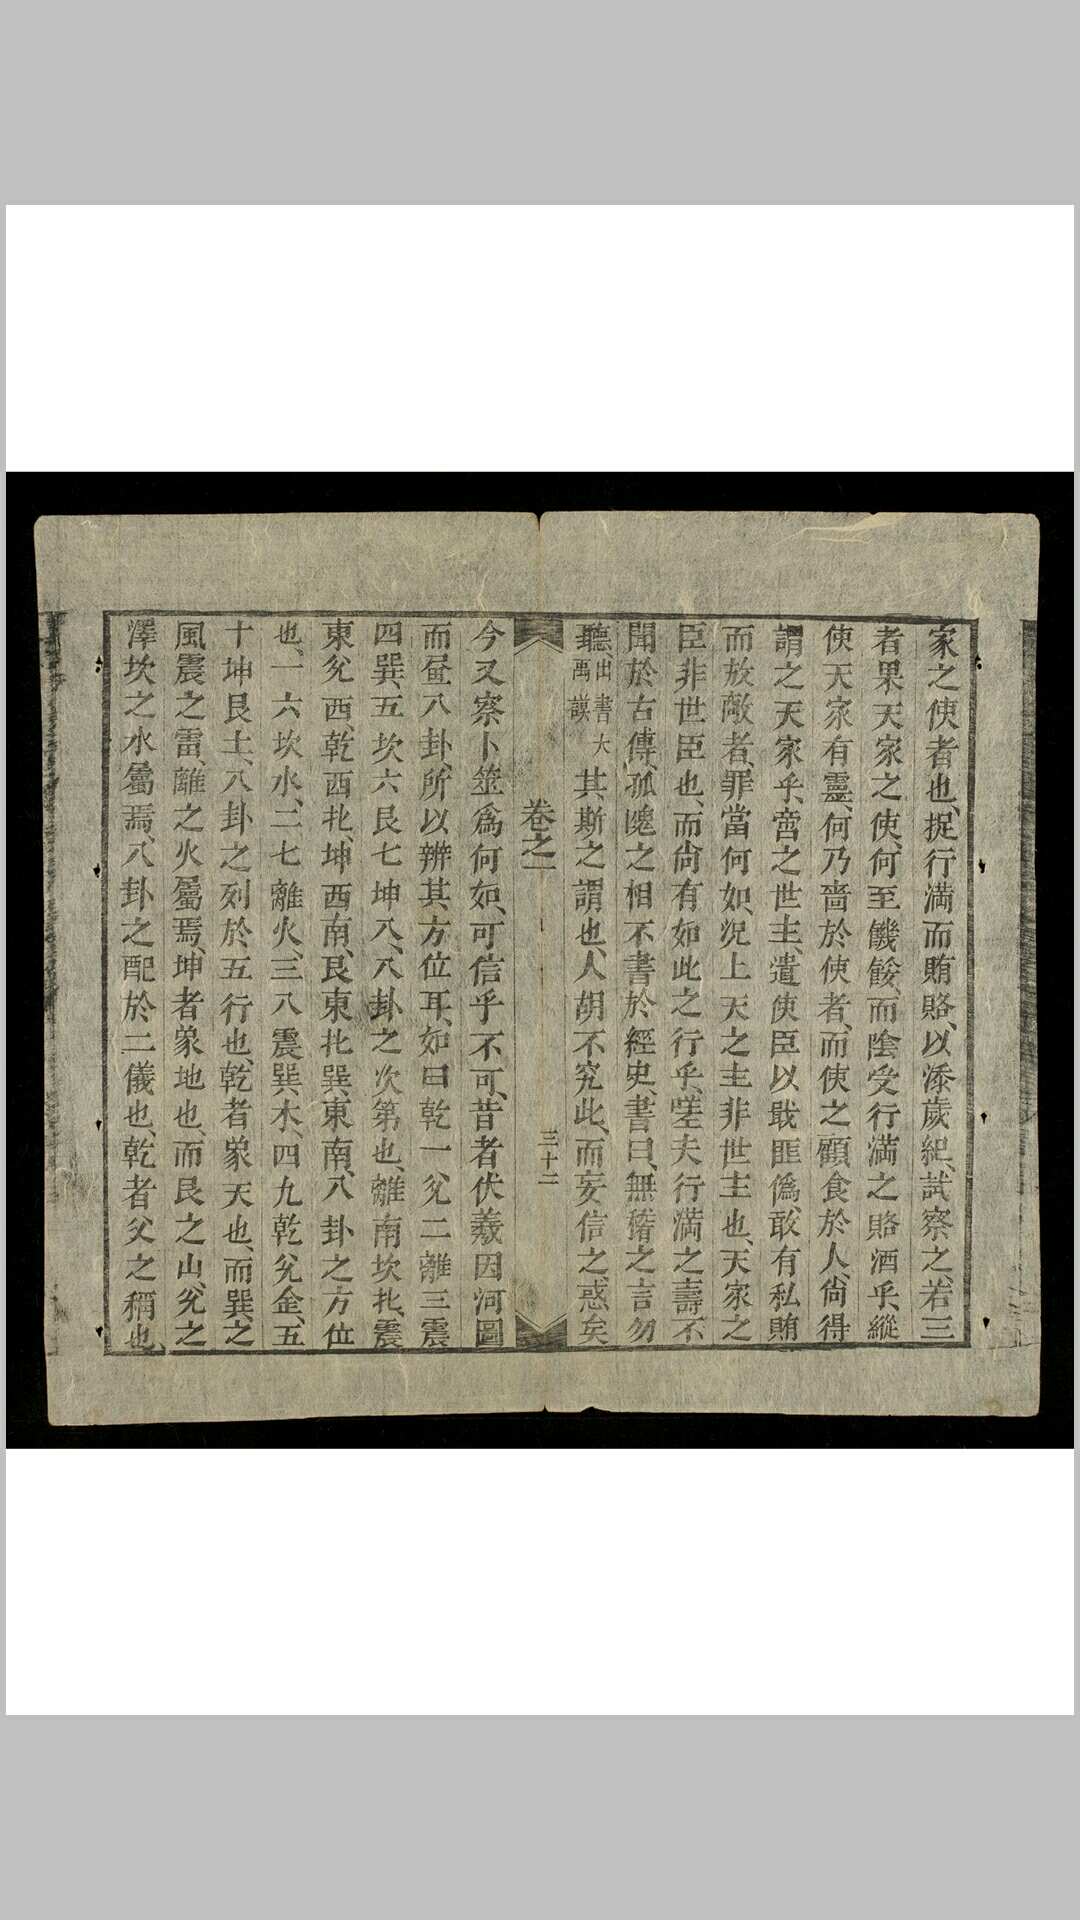 家之使者也、捉行滿而賄賂、以添歲紀、試察之、若三
者果天家之使、何至饑餒、而陰受行滿之賂酒乎、縱
使天家有靈、何乃嗇於使者、而使之顧食於人、尙得
謂之天家乎、嘗之世主、遣使臣以戢匪僞、敢有私賄
而放敵者、罪當何如、况上天之主非世主也、天家之
臣非世臣也、而尙有如此之行乎、嗟夫行滿之壽不
聞於古傳、孤隗之相不書於經史、書曰、無稽之言勿
聽、出書大禹謨其斯之謂也、人胡不究此、而妄信之、惑矣
卷之一
三十二
今又察卜筮爲何如、可信乎不可、昔者伏羲因河圖
而畫八卦、所以辨其方位耳、如曰乾一、兊二離三震
四巽、五坎六艮七坤八、八卦之次第也、離南坎北、震
東兊西、乾西北、坤西南、艮東北巽東南、八卦之方位
也、一六坎水、二七離火、三八震巽木、四九乾兊金、五
十坤艮土、八卦之列於五行也、乾者象天也、而巽之
風震之雷、離之火屬焉、坤者象地也、而艮之山、兊之
澤坎之水屬焉、八卦之配於二儀也、乾者父之稱也、